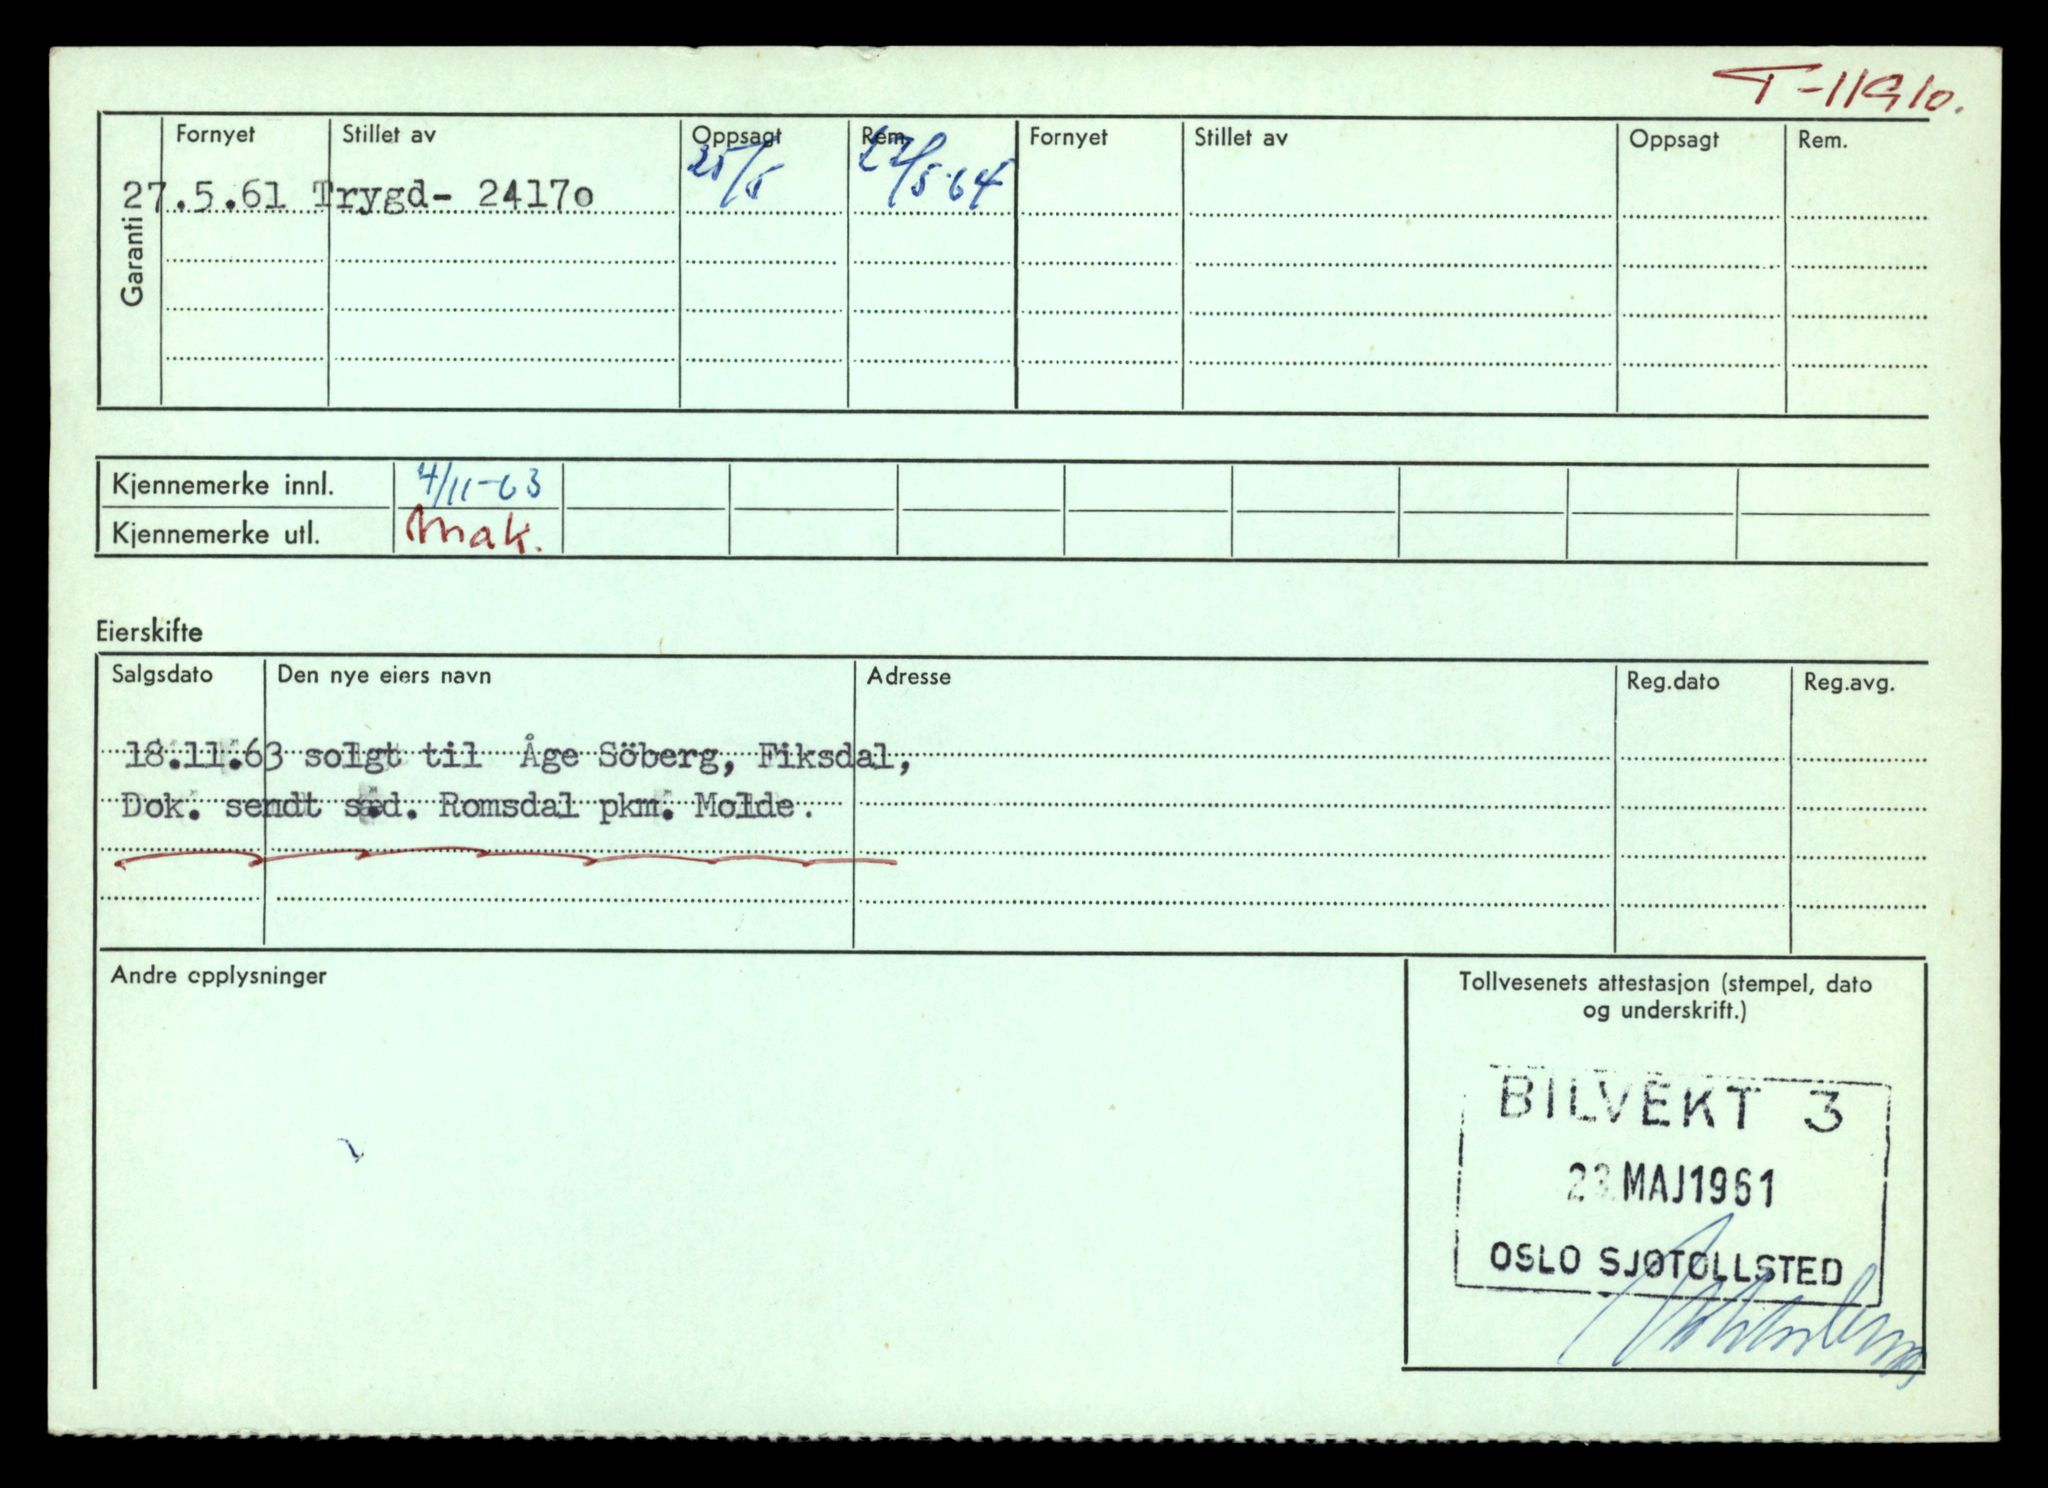 T-11910.
Fornyet Stillet av Oppsagt Rem. Fornyet Stillet av Oppsagt Rem.
Garanti
27.5.61 Trygd- 24170 25/5 27/5-64
Kjennemerke innl. 4/11-63
Kjennemerke utl. mak.
Eierskifte
Salgsdato Den nye eiers navn Adresse Reg.dato Reg.avg.
18.11.63 solgt til Åge Söberg, Fiksdal,
Dok. sendt s.d. Romsdal pkm. Molde.
Andre opplysninger
Tollvesenets attestasjon (stempel, dato
og underskrift.)
BILVEKT 3
23 MAJ 1961
OSLO SJØTOLLSTED